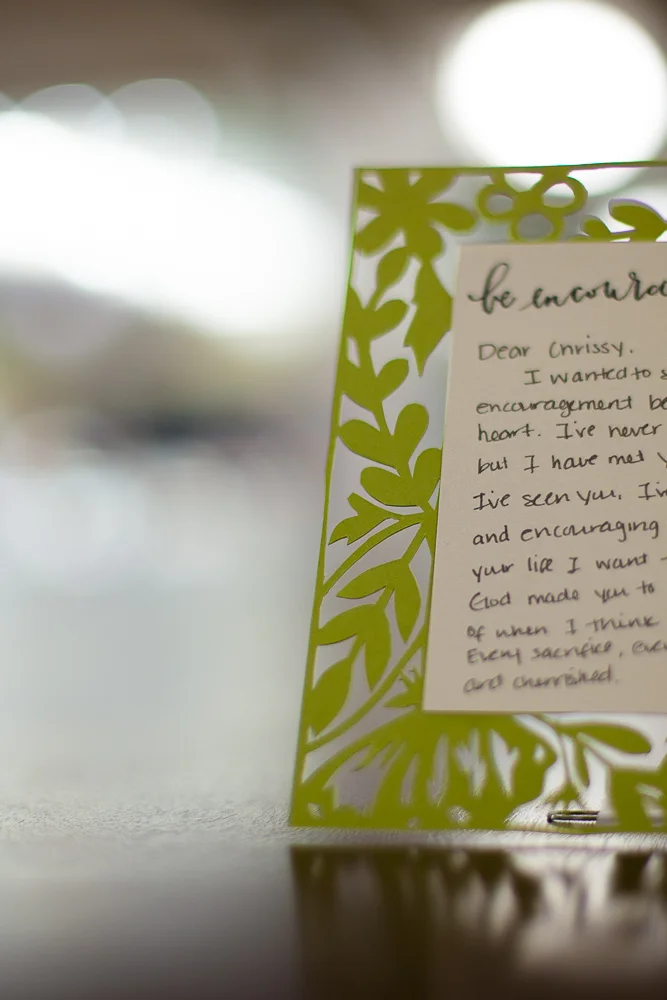 be encourag
Dear Chrissy.
I wanted to s
encouragement be
heart. I've never
but I have met y
I've seen you, I've
and encouraging
your life I want
God made you to
of when I think
Every sacrifice, eve
and cherished.